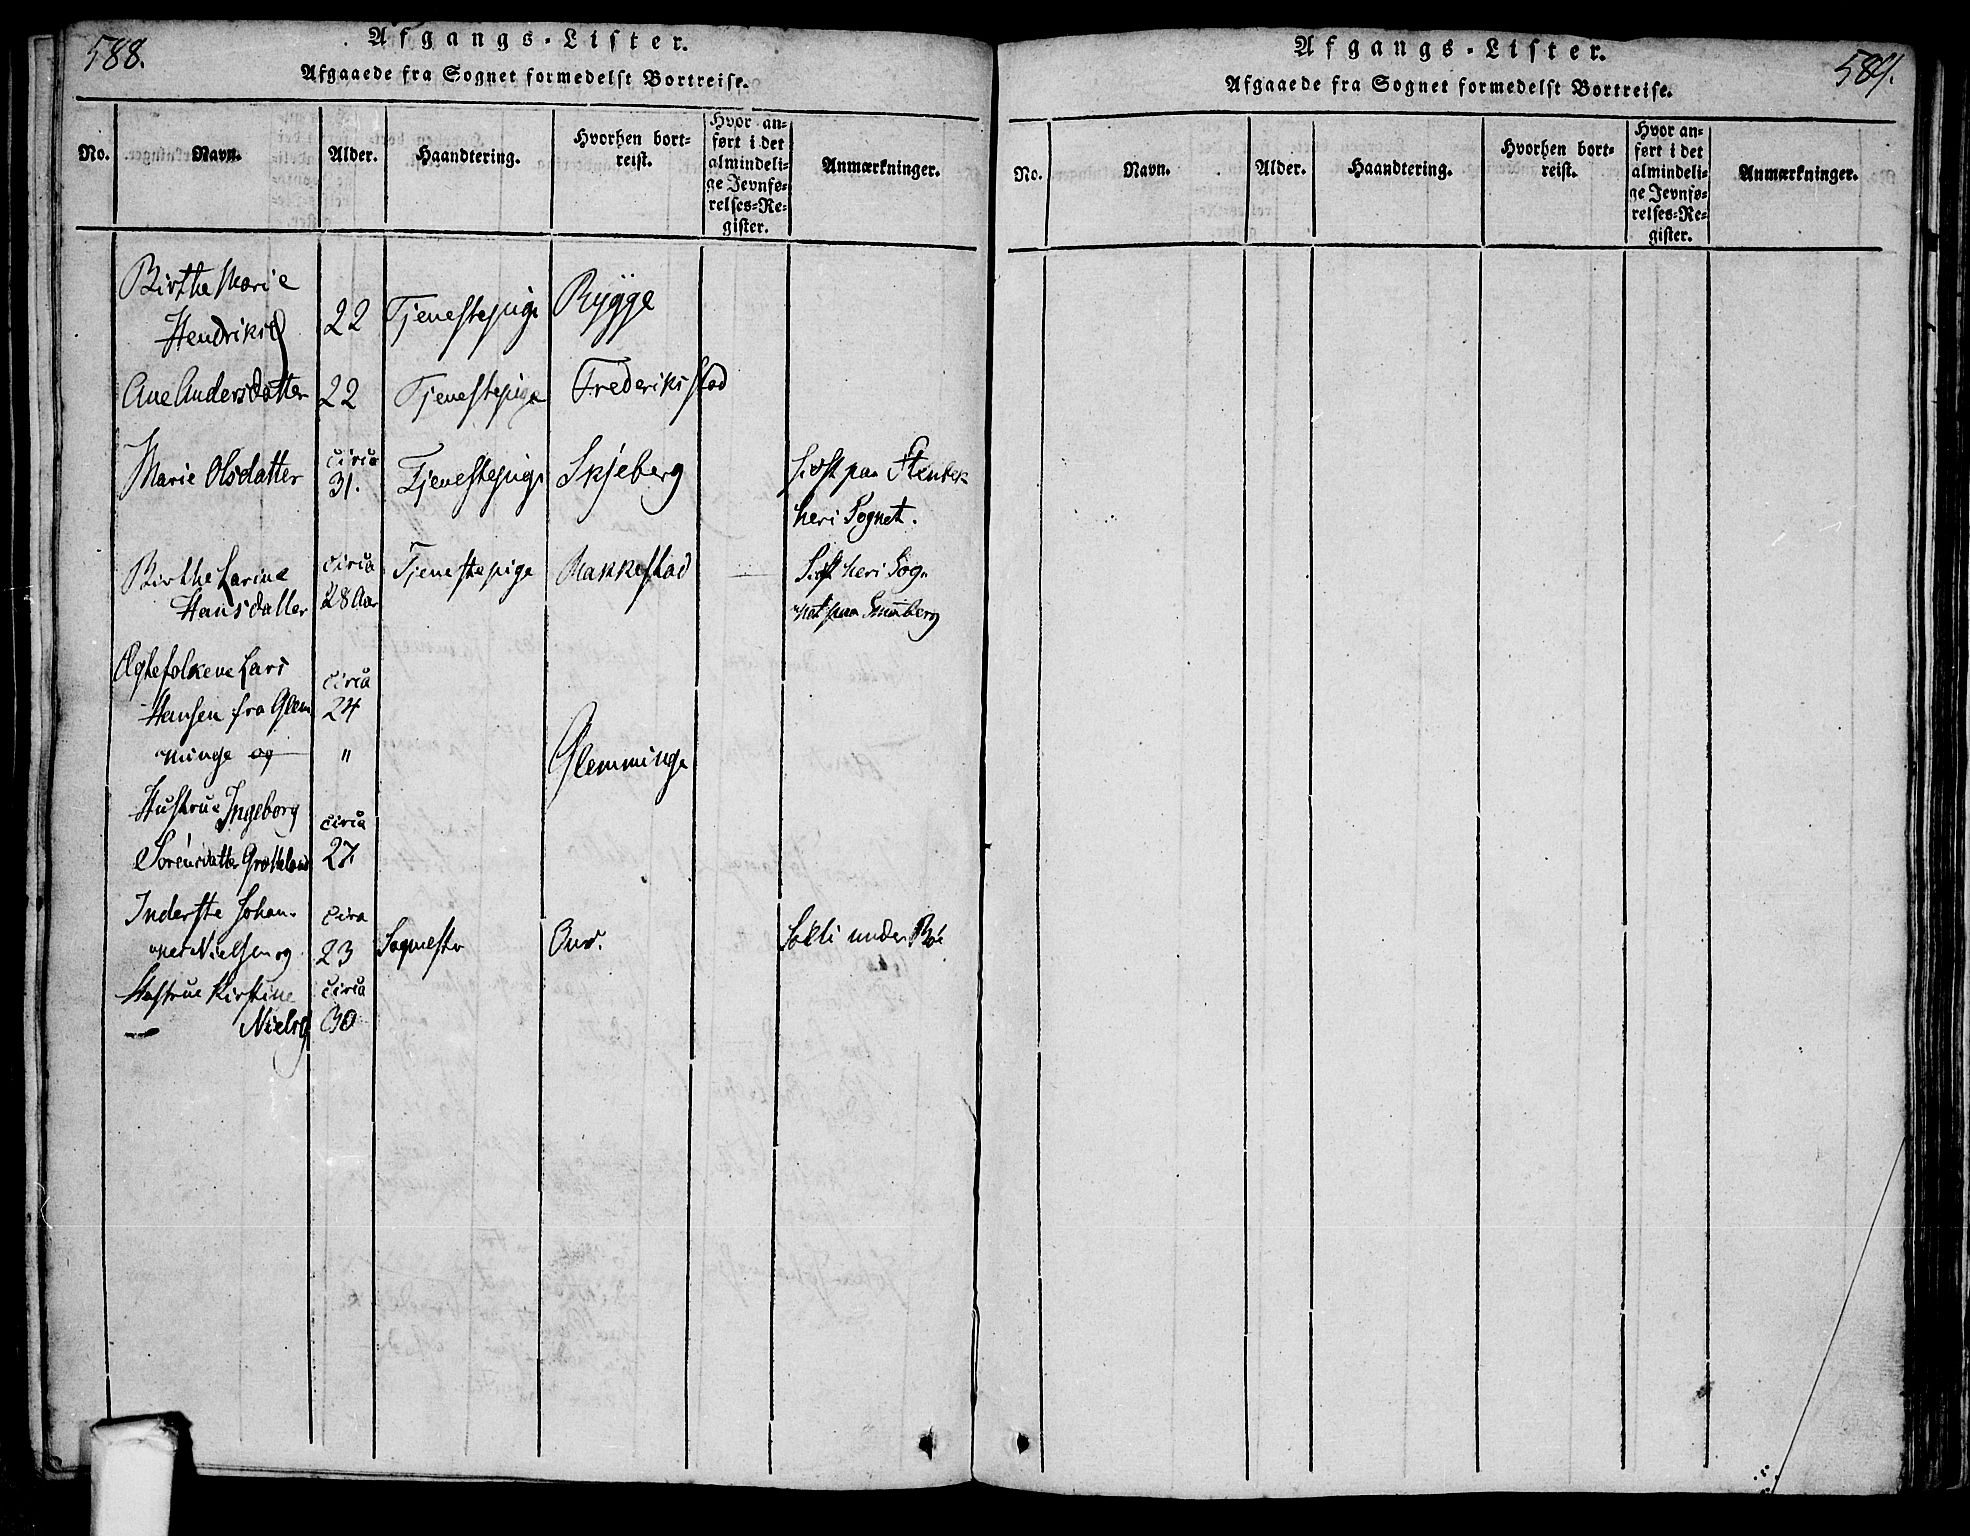 588.
Afgangs-Lister.
Afgaaede fra Sognet formedelst Bortreise.
No.
Navn.
Alder.
Haandtering.
Hvorhen bort-
reist.
Hvor an-
ført i det
almindeli-
ge Jevnfø-
relses-Re-
gister.
Anmærkninger.
Birthe Marie
Hendriksd
22
Tjenestepige
Rygge
Ane Andersdatter
22
Tjenestepige
Frederiksstad
Marie Olsdatter
circa
31.
Tjenestepige
Skjeberg
sidst paa
her i Sognet.
Birthe Karine
Hansdatter
circa
28 Aar
Tjenestepige
Rakkestad
Sidst her i Sog-
net paa
Ægtefolkene Lars
Hansen fra Glem
minge og
circa
24
"
Glemminge
Hustrue Ingeborg
Sørensdatter
circa
27
Inderste Johan-
nes Nielsen og
circa
23
Hustrue Kirstine
Nielsd
circa
30
under Bøe
589.
Afgangs-Lister.
Afgaaede fra Sognet formedelst Bortreise.
No.
Navn.
Alder.
Haandtering.
Hvorhen bort-
reist.
Hvor an-
ført i det
almindeli-
ge Jevnfø-
relses-Re-
gister.
Anmærkninger.